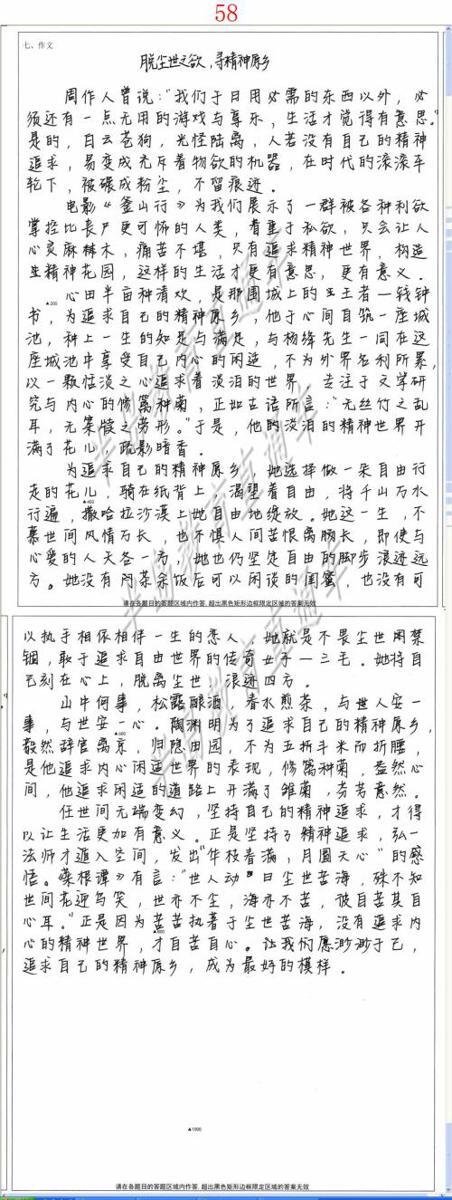 58
七、作文
脱尘世之欲，寻精神原乡
周作人曾说：“我们于日用必需的东西以外，必
须还有一点无用的游戏与享乐，生活才觉得有意思。”
是的，白云苍狗，光怪陆离，人若没有自己的精神
追求，易变成充斥着物欲的机器，在时代的滚滚车
轮下，被碾成粉尘，不留痕迹。
电影《釜山行》为我们展示了一群被各种利欲
掌控比丧尸更可怖的人类，看重于私欲，只会让人
心灵麻木，痛苦不堪，只有追求精神世界，构造
生精神花园，这样的生活才更有意思，更有意义。
心田半亩种清欢，是那围城上的王者—钱钟
▲200
书，为追求自己的精神原乡，他于心间自筑一座城
池，种上一生的知足与满足，与杨绛先生一同在这
座城池中享受自己内心的闲适，不为外界名利所累，
以一颗恬淡之心追求着淡泊的世界，专注于文学研
究与内心的修篱种菊，正如古语所言：“无丝竹之乱
耳，无案牍之劳形。”于是，他的淡泊的精神世界开
满了花儿，疏影暗香。
为追求自己的精神原乡，她选择做一朵自由行
走的花儿，骑在纸背上，渴望着自由，将千山万水
▲400
行遍，撒哈拉沙漠上她自由地绽放。她这一生，不
慕世间风情万长，也不惧人间苦恨离肠长，即使与
心爱的人天各一方，她也仍坚定自由的脚步浪迹远
方。她没有闲茶余饭后可以闲谈的闺蜜，也没有可
请在各题目的答题区域内作答，超出黑色矩形边框限定区域的答案无效
以执手相依相伴一生的恋人，她就是不畏尘世闲禁
锢，敢于追求自由世界的传奇女子—三毛。她将自
己刻在心上，脱离尘世，浪迹四方。
山中何事，松露酿酒，春水煎茶，与世人安一
事，与世安一心。陶渊明为了追求自己的精神原乡，
毅然辞官离京，归隐田园，不为五折斗米而折腰，
是他追求内心闲适世界的表现，修篱种菊，盎然心
间，他追求闲适的道路上开满了雏菊，芬芳意然。
任世间无端变幻，坚持自己的精神追求，才得
以让生活更加有意义。正是坚持了精神追求，弘一
法师才遁入空间，发出“华枝春满，月圆天心”的感
悟。《菜根谭》有言：“世人动曰尘世苦海，殊不知
世间花迎鸟笑，世亦不尘，海亦不苦，彼自苦其自
心耳。”正是因为苦苦执著于尘世苦海，没有追求内
心的精神世界，才自苦自心。让我们愿渺渺于己，
追求自己的精神原乡，成为最好的模样。
▲1000
请在各题目的答题区域内作答，超出黑色矩形边框限定区域的答案无效